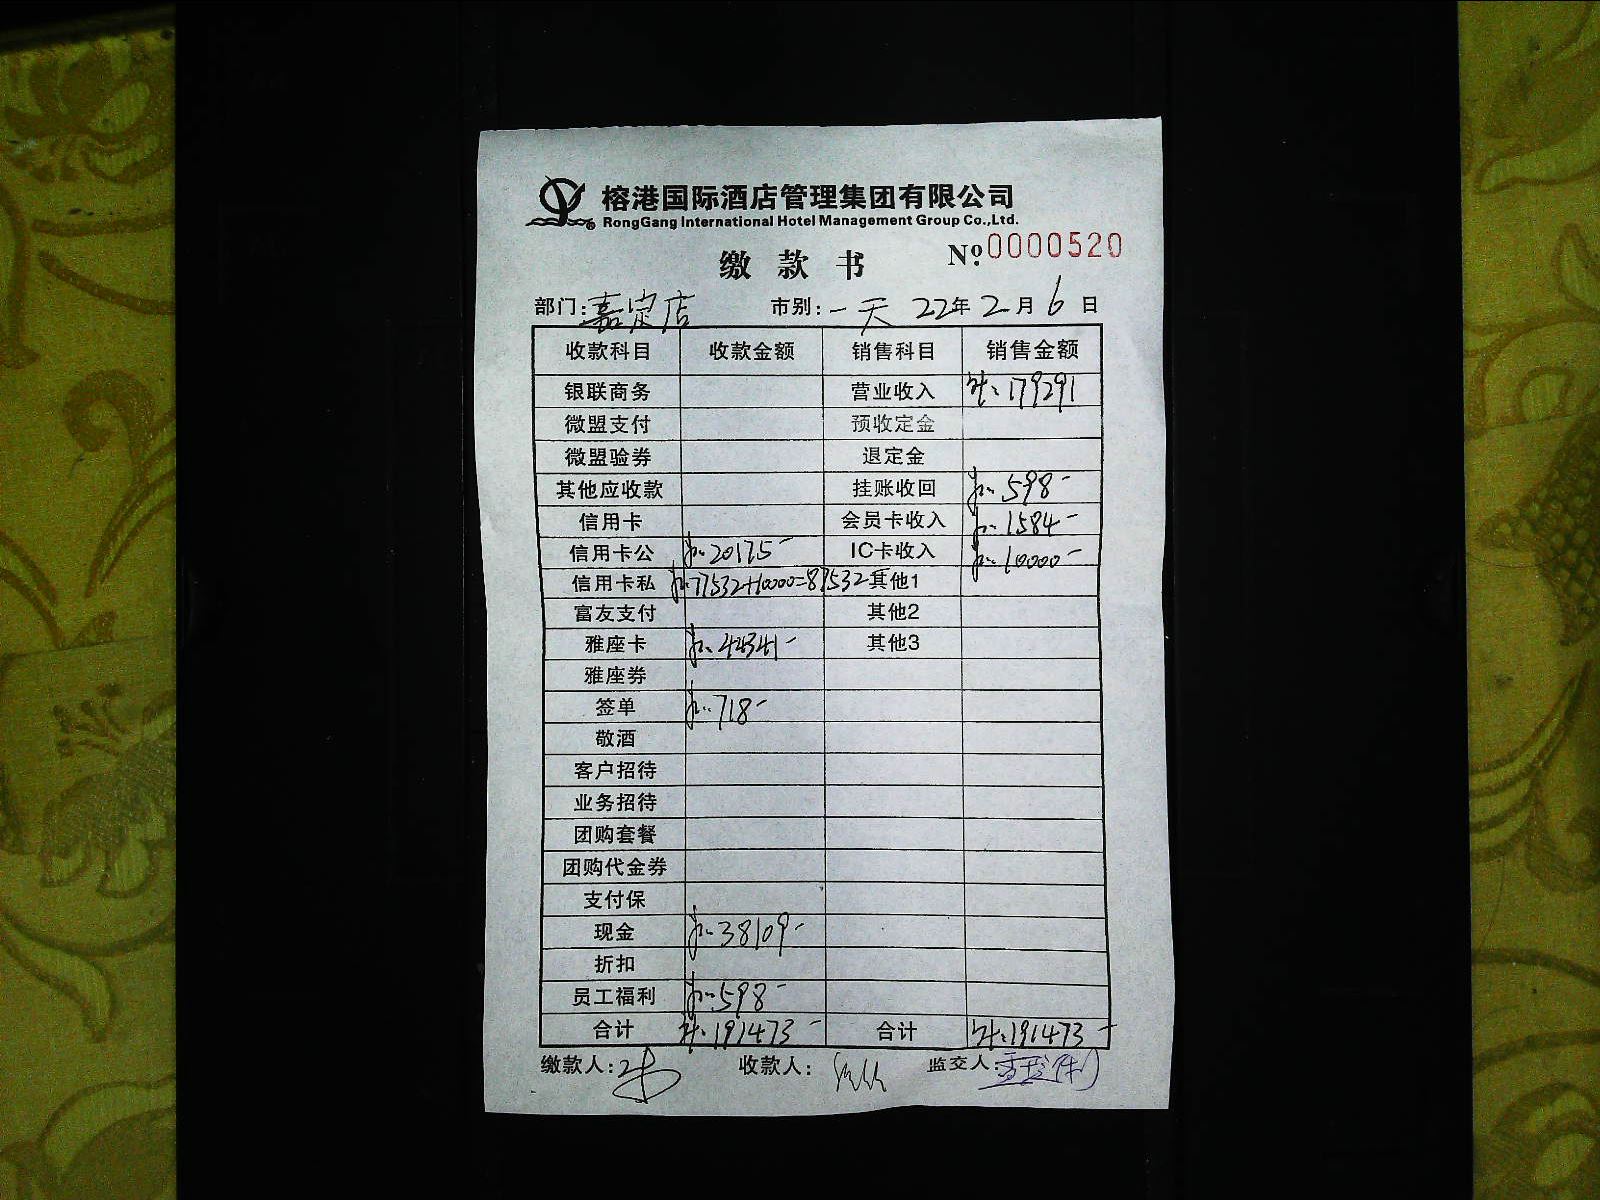 榕港国际酒店管理集团有限公司
RongGang International Hotel Management Group Co.,Ltd.
缴款书 Nº:0000520
部门:嘉定店 市别:一天 22年2月6日
收款科目 收款金额 销售科目 销售金额
银联商务 营业收入 179291
微盟支付 预收定金
微盟验券 退定金
其他应收款 挂账收回 598-
信用卡 会员卡收入 1584-
信用卡公 20175- IC卡收入 10000-
信用卡私 77532+10000=87532 其他1
富友支付 其他2
雅座卡 44341- 其他3
雅座券
签单 718-
敬酒
客户招待
业务招待
团购套餐
团购代金券
支付保
现金 38109-
折扣
员工福利 598-
合计 191473- 合计 191473-
缴款人: 收款人: 监交人: